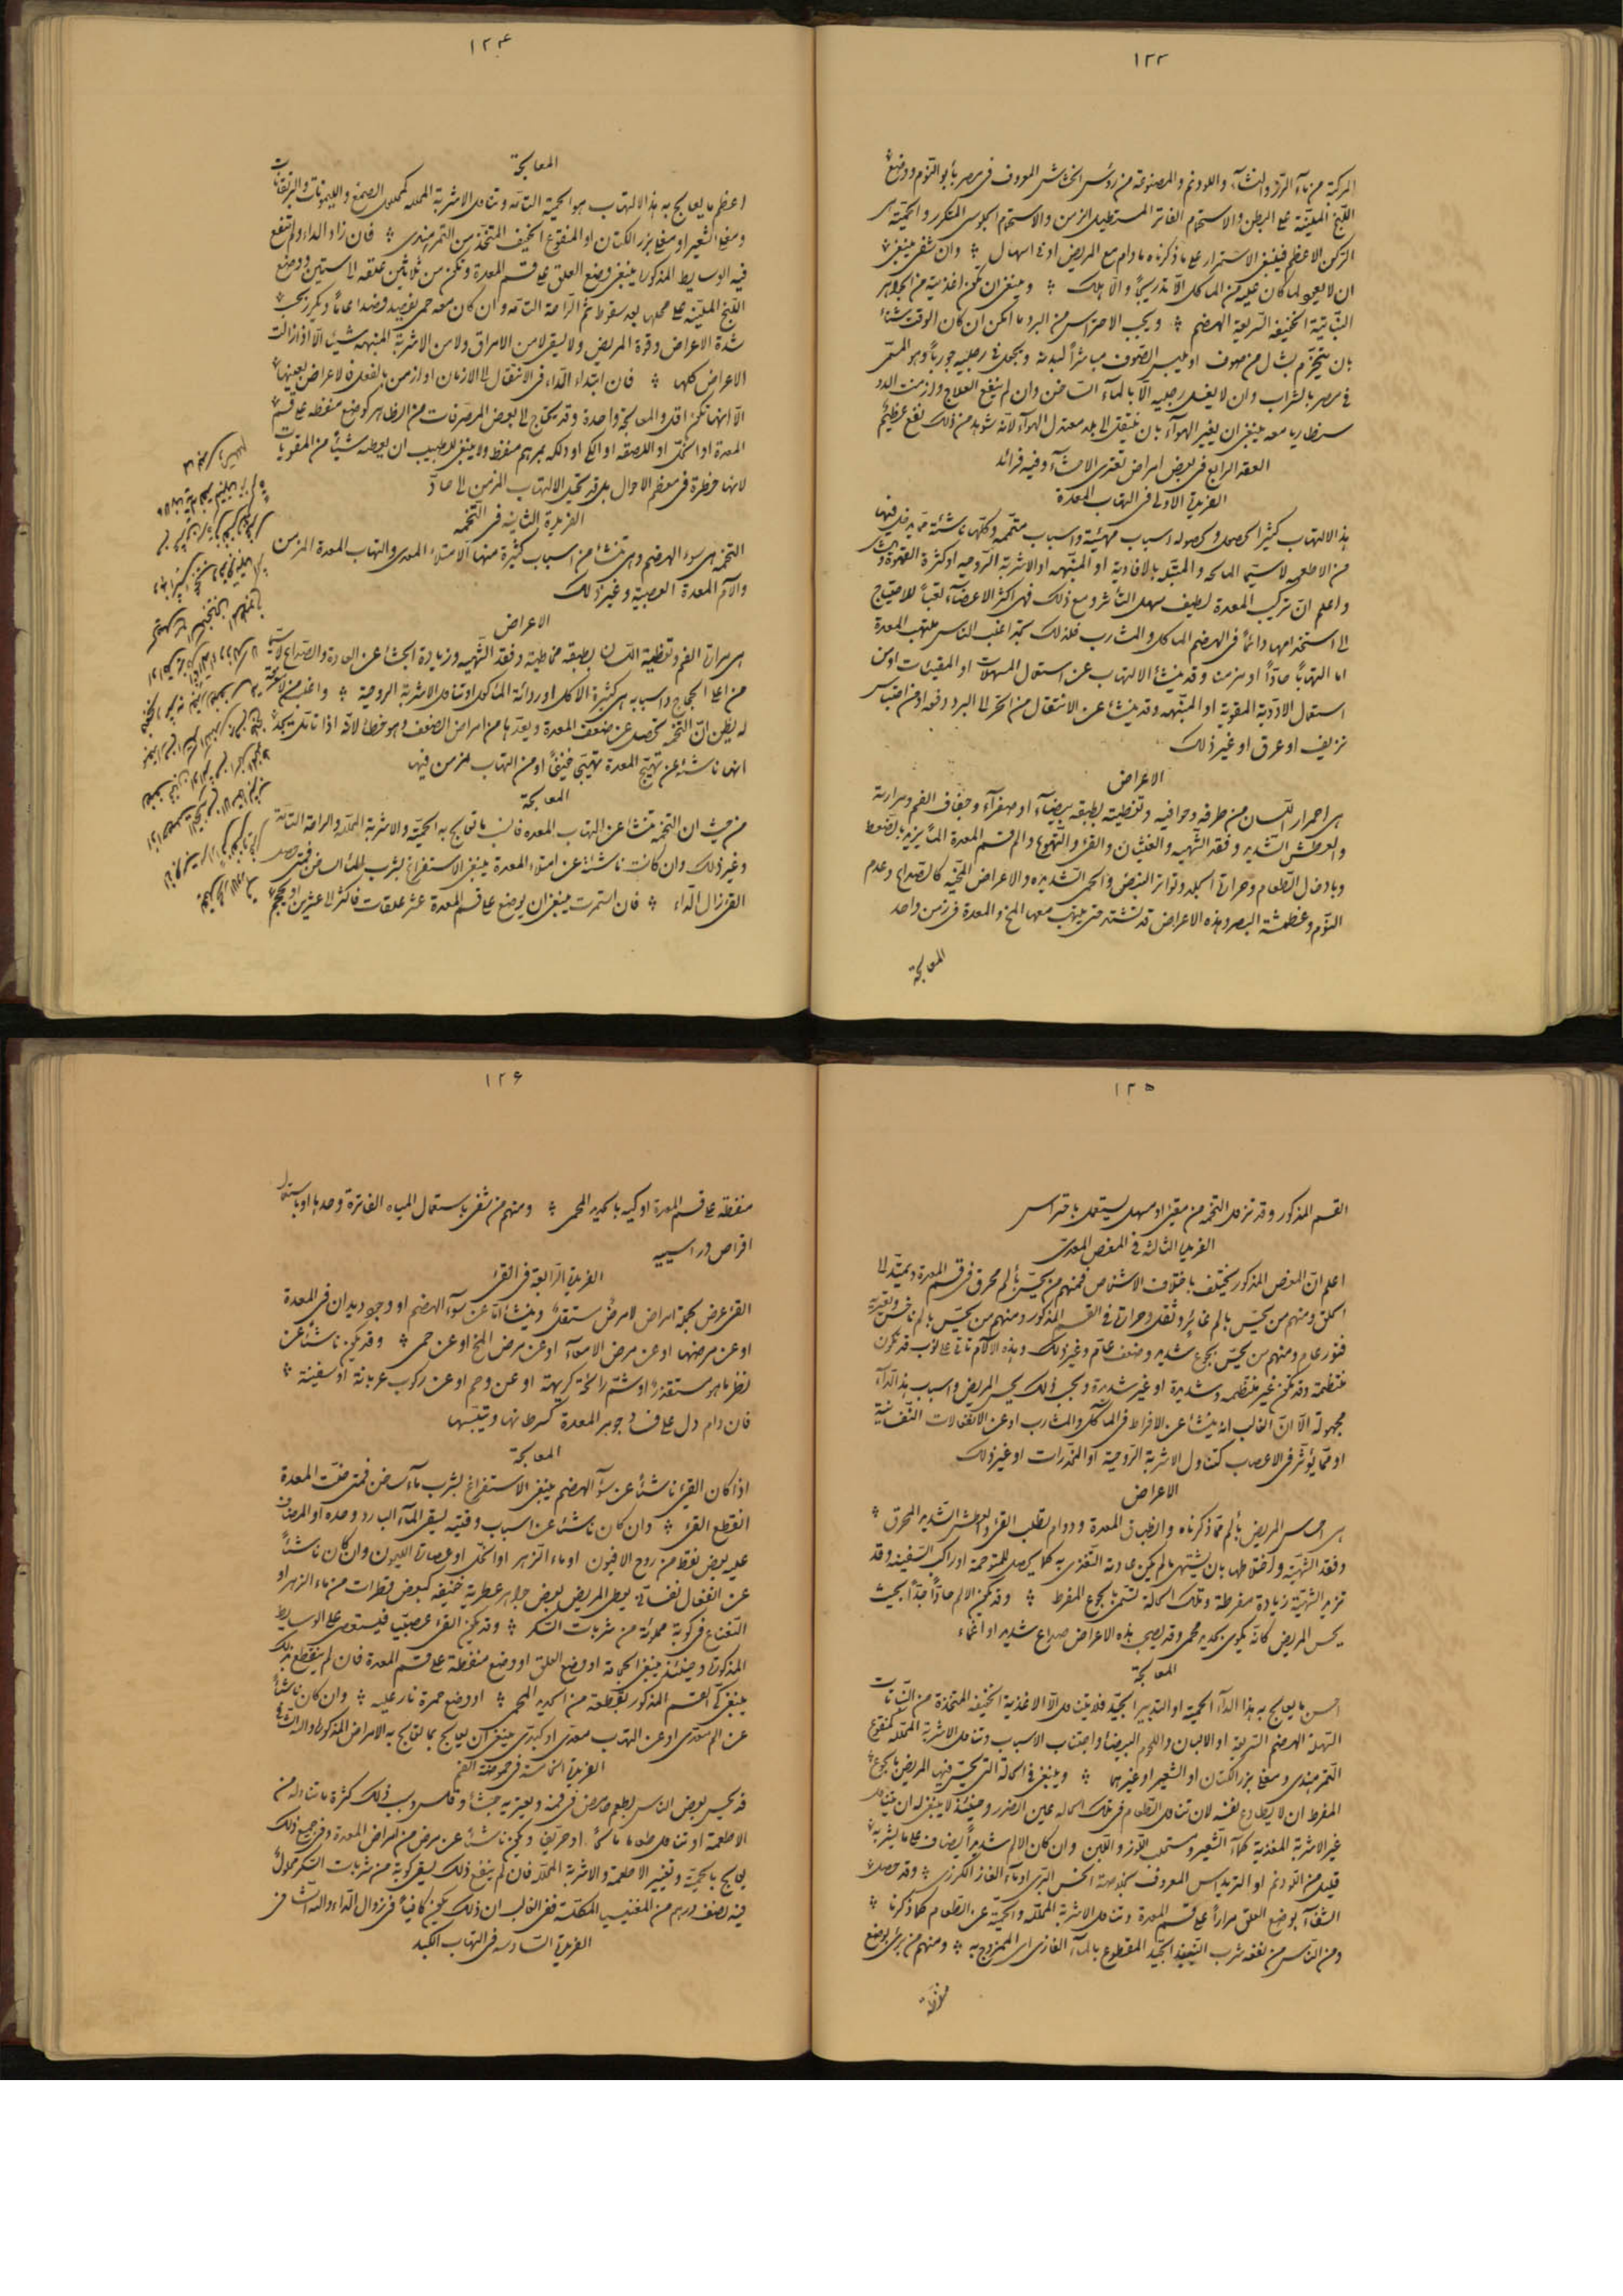 ١٢٣
المركبة من ماء الرز والنشاء واللودنم والمصنوعة من رؤس الخشخاش المعروف فى مصر بأبو النوم ووضع
اللبخ الملينة على البطن والاستحمام الفاتر المستطيل الزمن والاستحمام الجلوسى المتكرر والحمية هى
الركن الاعظم فينبغى الاستمرار على ما ذكرناه ما دام مع المريض ادنى اسهال وان شفى ينبغى
ان لا يعود لما كان عليه من المآكل الا تدريجاً والا هلك وينبغى ان تكون اغذيته من الجواهر
النباتية الخفيفة السريعة الهضم ويجب الاحتراس من البرد ما امكن ان كان الوقت شتاء
بان يتحزم بشال من صوف او يلبس الصوف مباشراً لبدنه ويجعل فى رجليه جورباً وهو المسمى
فى مصر بالشراب وان لا يغسل رجليه الا بالماء الساخن وان لم ينفع العلاج وازمنت الدو
سنطاريا معه ينبغى ان يغير الهواء بان ينتقل الى بلد معتدل الهواء لانه شوهد من ذلك نفع عظيم
العقد الرابع فى بعض امراض تعترى الاحشاء وفيه فرائد
الفريدة الاولى فى التهاب المعدة
هذا الالتهاب كثيرا ما يحصل ولحصوله اسباب مهيئة واسباب متممة وكلها ناشئة مما يدخل فيها
من الاطعمة لا سيما المالحة والمتبلة بالافاوية او المنبهة او الاشربة الروحيه او كثرة القهوة
واعلم ان تركيب المعدة لطيف سهل التأثر ومع ذلك فهى اكثر الاعضاء تعباً للاحتياج
الى استخدامها دائماً فى الهضم المآكل والمشارب فلذلك تجد اغلب الناس ملتهب المعدة
اما التهاباً حاداً او مزمنا وقد ينشأ الالتهاب عن استعمال المسهلات او المقيئات او من
استعمال الادوية المقوية او المنبهة وقد ينشأ عن الانتقال من الحر الى البرد دفعة او من احتباس
نزيف او عرق او غير ذلك
الاعراض
هى احمرار اللسان من طرفه وحوافيه وتغطيته بطبقة بيضاء او صفراء وجفاف الفم ومرارته
والعطش الشديد وفقد الشهية والغثيان والقئ والتهوع والم قسم المعدة الما يزيد بالضغط
وبادخال الطعام وحرارة الجلد وتواتر النبض والحمى الشديدة والاعراض المخية كالصداع وعدم
النوم وغطمشة البصر وهذه الاعراض قد تشتد حتى يلتهب معها المخ والمعدة فى زمن واحد
المعالجة
١٢٤
المعالجة
اعظم ما يعالج به هذا الالتهاب هو الحمية التامة وتناول الاشربة المحللة كمحلول الصمغ والليمونات والبرتقانات
ومغلى الشعير او مغلى بزر الكتان او المنقوع الخفيف المتخذ من التمر هندى فان زاد الداء ولم تنفع
فيه الوسايط المذكورة ينبغى وضع العلق على قسم المعدة وتكون من ثلاثين علقة الى ستين ووضع
اللبخ الملينة على محلها بعد سقوطه ثم الراحة التامة وان كان معه حمى يفصد فصدا عاماً ويكرر بحسب
شدة الاعراض وقوة المريض ولا يسقى لا من الامراق ولا من الاشربة المنبهة شيئا الا اذا زالت
الاعراض كلها فان ابتداء الداء فى الانتقال الى الازمان او ازمن بالفعل فالاعراض بعينها
الا انها تكون اقل والمعالجة واحدة وقد يحتاج الى بعض المصرفات من الظاهر كوضع منفطة على قسم
المعدة او الحمق او اللصقة او الكى او دلكه بمرهم منفط ولا ينبغى للطبيب ان يعطيه شيئاً من المقويات
لانها خطرة فى معظم الاحوال بل قد تحيل الالتهاب المزمن الى حاد
الفريدة الثانية فى التخمه
التخمة هى سوء الهضم وهى تنشأ من اسباب كثيرة منها الامتلاء المعدى والتهاب المعدة المزمن
وآلام المعدة العصبية وغير ذلك
الاعراض
هى مرارة الفم وتغطية اللسان بطبقة مخاطية وفقد الشهية وزيادة الجشاء عن العادة والصداع لا سيما
من اعلا الحجاج واسبابه هى كثيرة الاكل او ردائة المأكول او تناول الاشربة الروحية واغلب من لا معرفة
له يظن ان التخمة تحصل عن ضعف المعدة ويعدها من امراض الضعف وهو خطأ لانه اذا تأملت تجد
انها ناشئة عن تهيج المعدة تهيجاً خفيفاً او من التهاب مزمن فيها
المعالجة
من حيث ان التخمة تنشأ عن التهاب المعدة فانسب ما تعالج به الحمية والاشربة المحللة والراحة التامة
وغير ذلك وان كانت ناشئة عن امتلاء المعدة ينبغى الاستفراغ بشرب الماء الساخن فمتى حصل
القئ زال الداء فان استمرت ينبغى ان يوضع على قسم المعدة عشر علقات فاكثر الى عشرين او يحجم
١٢٥
القسم المذكور وقد تزول التخمة من مقيئ او مسهل يستعمل باحتراس
الفريدة الثالثة فى المغص المعدى
اعلم ان المغص المذكور يختلف باختلاف الاشخاص فمنهم من يحس بألم محرق فى قسم المعدة ويمتد الى
الحلق ومنهم من يحس بالم غائر وثقل وحرارة فى القسم المذكور ومنهم من يحس بالم ناخس وتعتريه
فتور عام ومنهم من يحس بجوع شديد وضعف عام وغير ذلك وهذه الآلام تاتى على نوب قد تكون
منتظمة وقد تكون غير منتظمه وشديدة او غير شديدة وبحسب ذلك يحس المريض واسباب هذا الداء
مجهولة الا ان الغالب انه ينشأ عن الافراط فى المآكل والمشارب او عن الانفعالات النفسانية
او مما يؤثر فى الاعصاب كتناول الاشربة الروحية او المخدرات او غير ذلك
الاعراض
هى احساس المريض بألم مما ذكرناه وانطباق المعدة ودوام تطلب القئ والعطش الشديد المحرق
وفقد الشهية واختلاطها بان يشتهى ما لم يكن عادته التغذى به كما يحصل للمتوحمة او راكب السفينة وقد
تزيد الشهية زيادة مفرطة وتلك الحالة تسمى بالجوع المفرط وقد يكون الالم حاداً جداً بحيث
يحس المريض كانه يكوى بحديد محمى وقد يصحب هذه الاعراض صداع شديد او اغماء
المعالجة
احسن ما يعالج به هذا الداء الحمية او التدبير الجيد فلا يتناول الا الاغذية الخفيفة المتخذة من النباتات
السهلة الهضم السريعة او الالبان واللحوم البيضاء واجتناب الاسباب وتناول الاشربة المحللة كمنقوع
التمر هندى ومغلى بزر الكتان او الشعير او غيرهما وينبغى فى الحالة التى يحس فيها المريض بالجوع
المفرط ان لا يطاوع نفسه لان تناول الطعام فى تلك الحالة عين الضرر وحينئذ لا ينبغى له ان يتناول
غير الاشربة المغذية كماء الشعير ومستحلب اللوز واللبن وان كان الالم شديداً يضاف على ما يشربه
قليل من اللودنم او التريداس المعروف بخلاصة الخس البرى او ماء الغار الكرزى وقد حصل
الشفاء بوضع العلق مراراً على قسم المعدة وتناول الاشربة المحللة والحمية عن الطعام كما ذكرنا
ومن الناس من نفعه شرب النبيذ الجيد المقطوع بالماء الغازى اى الممزوج به ومنهم من برئ بوضع
منفطة
١٢٦
منفطة على قسم المعدة او كيه بالحديد المحمى ومنهم من شفى باستعمال المياه الفاترة وحدها او باستعمال
اقراص دراسييه
الفريدة الرابعة فى القئ
القئ عرض لجملة امراض لا مرض مستقل وينشأ اما عن سوء الهضم او وجود ديدان فى المعدة
او عن مرضها او عن مرض الامعاء او عن مرض المخ او عن حمى وقد يكون ناشئاً عن
نظر ما هو مستقذر او شم رائحة كريهة او عن وحم او عن ركوب عربانة او سفينة
فان دام دل على فساد جوهر المعدة كسرطانها وتيبسها
المعالجة
اذا كان القئ ناشئاً عن سوء الهضم ينبغى الاستفراغ بشرب ماء ساخن فمتى خفت المعدة
انقطع القئ وان كان ناشئاً عن اسباب وقتية يسقى الماء البارد وحده او المضاف
عليه بعض نقط من روح الافيون او ماء الزهر او الخل او عصارة الليمون وان كان ناشئاً
عن انفعال نفسانى يعطى المريض بعض جواهر عطرية خفيفة كبعض قطرات من ماء الزهر او
النعناع فى كوبة مملوئة من شربات السكر وقد يكون القئ عصبيا فيستعصى على الوسايط
المذكورة وحينئذ ينبغى الحجامة او وضع العلق او وضع منفطة على قسم المعدة فان لم ينقطع بذلك
ينبغى كى القسم المذكور بقطعة من الحديد المحمى او وضع جمرة نار عليه وان كان ناشئاً
عن الم معدى او عن التهاب معدى او كبدى ينبغى ان يعالج بما تعالج به الامراض المذكورة والله الشافى
الفريدة الخامسة فى حموضة الفم
قد يحس بعض الناس بطعم حامض فى فمه ويعتريه جشاء وقلس وسبب ذلك كثرة ما تناوله من
الاطعمة او تناول طعاما مالحاً او حريفا ويكون ناشئاً عن مرض من امراض المعدة وفى جميع ذلك
يعالج بالحمية وتغيير الاطعمة والاشربة المحللة فان لم ينفع ذلك يسقى كوبة من شربات السكر محلول
فيه نصف درهم من المغنيسيا المكلسة ففى الغالب ان ذلك يكون كافياً فى زوال الداء والله الشافى
الفريدة السادسة فى التهاب الكبد